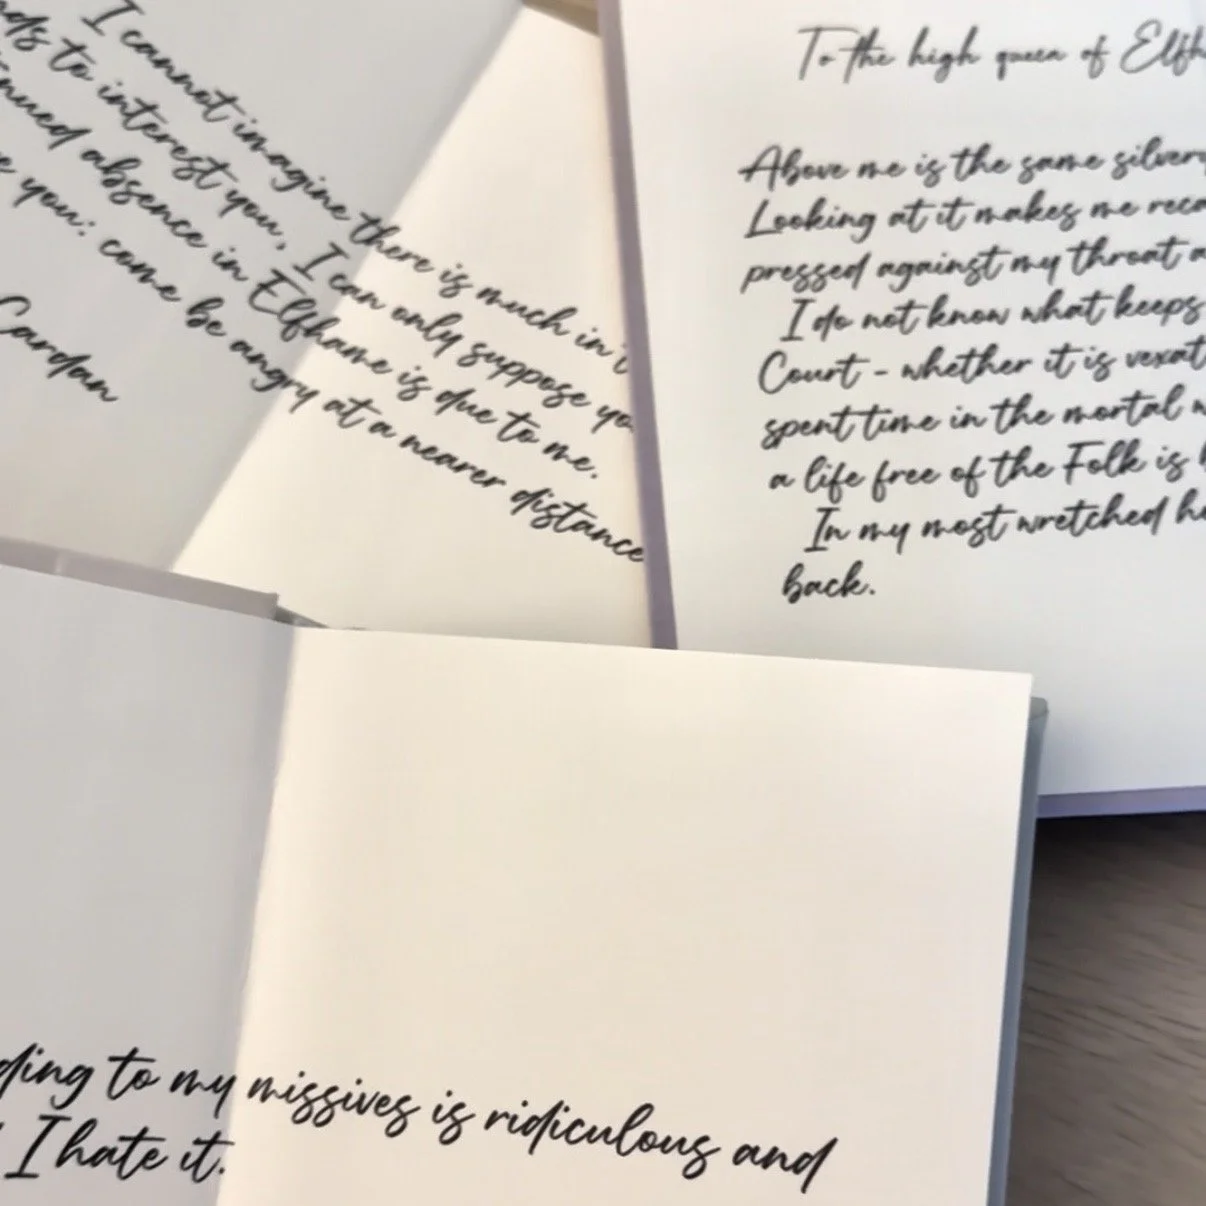 I cannot imagine there is much in t
ds to interest you, I can only suppose yo
nued absence in Elfhame is due to me.
you: come be angry at a nearer distance
Cardan
To the high queen of Elfh
Above me is the same silvery
Looking at it makes me reca
pressed against my throat a
I do not know what keeps
Court - whether it is vexat
spent time in the mortal w
a life free of the Folk is b
In my most wretched ho
back.
ding to my missives is ridiculous and
I hate it.